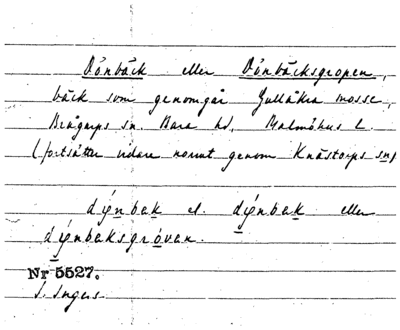 Dönbäck eller Dönbäcksgropen,
bäck som genomgår Gullåkra mosse,
Brågarps sn. Bara hd, Malmöhus l.
(fortsätter vidare norrut genom Knästorps sn)
dýnbak el. dýnbak eller
dýnbaksgróvan.
Nr 5527.
I. Ingers